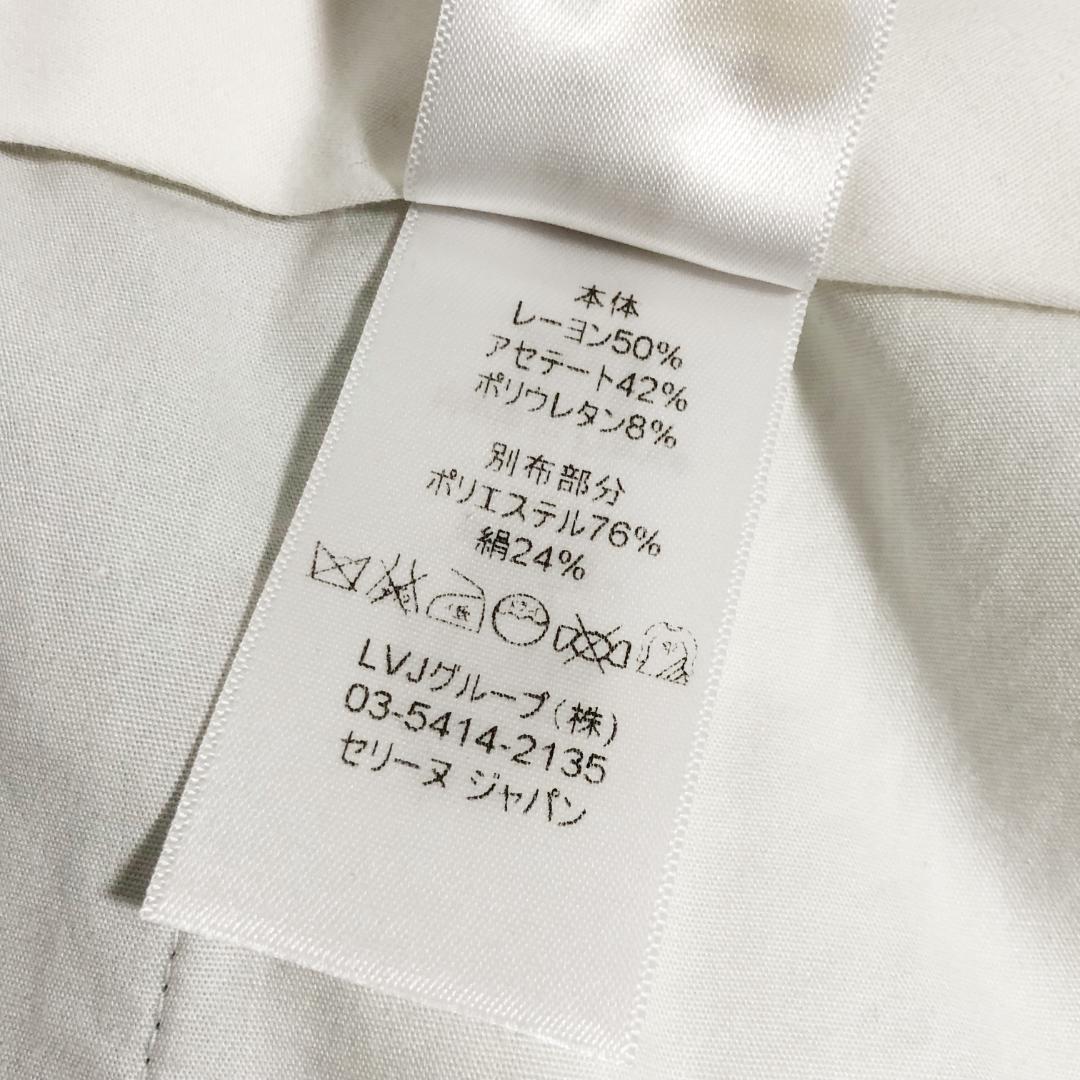 本体
レーヨン50%
アセテート42%
ポリウレタン8%
別布部分
ポリエステル76%
絹24%
LVJグループ(株)
03-5414-2135
セリーヌ ジャパン